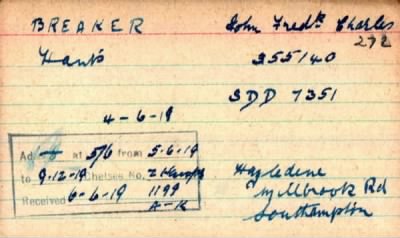 BREAKER John Fred<sup>k</sup> Charles
272
Hants 355140
SDD 7351
4-6-19
Ad at 5/6 from 5-6-19
to 9-12-19 Chelsea No.
Received 6-6-19 1199
A-K
Hazledene
Millbrook Rd
Southampton